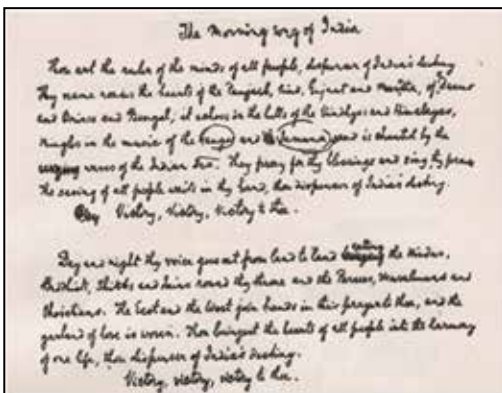 The Morning song of India
Thou art the ruler of the minds of all people, dispenser of India's destiny
Thy name rouses the hearts of the Punjab, Sind, Gujrat and Maratha, of Dravid
and Orissa and Bengal; it echoes in the hills of the Vindhyas and Himalayas,
mingles in the music of the and Jumna and is chanted by the
waves of the Indian Sea. They pray for thy blessings and sing thy praise
the saving of all people waits in thy hand, thou dispenser of India's destiny.
Victory, Victory, Victory to thee.
Day and night thy voice goes out from land to land calling the Hindus,
Buddhists, Sikhs and Jains round thy throne and the Parsees, Musalmans and
Christians. The East and the West join hands in their prayer to thee, and the
garland of love is woven. Thou bringest the hearts of all people into the harmony
of one life, thou dispenser of India's destiny.
Victory, victory, victory to thee.